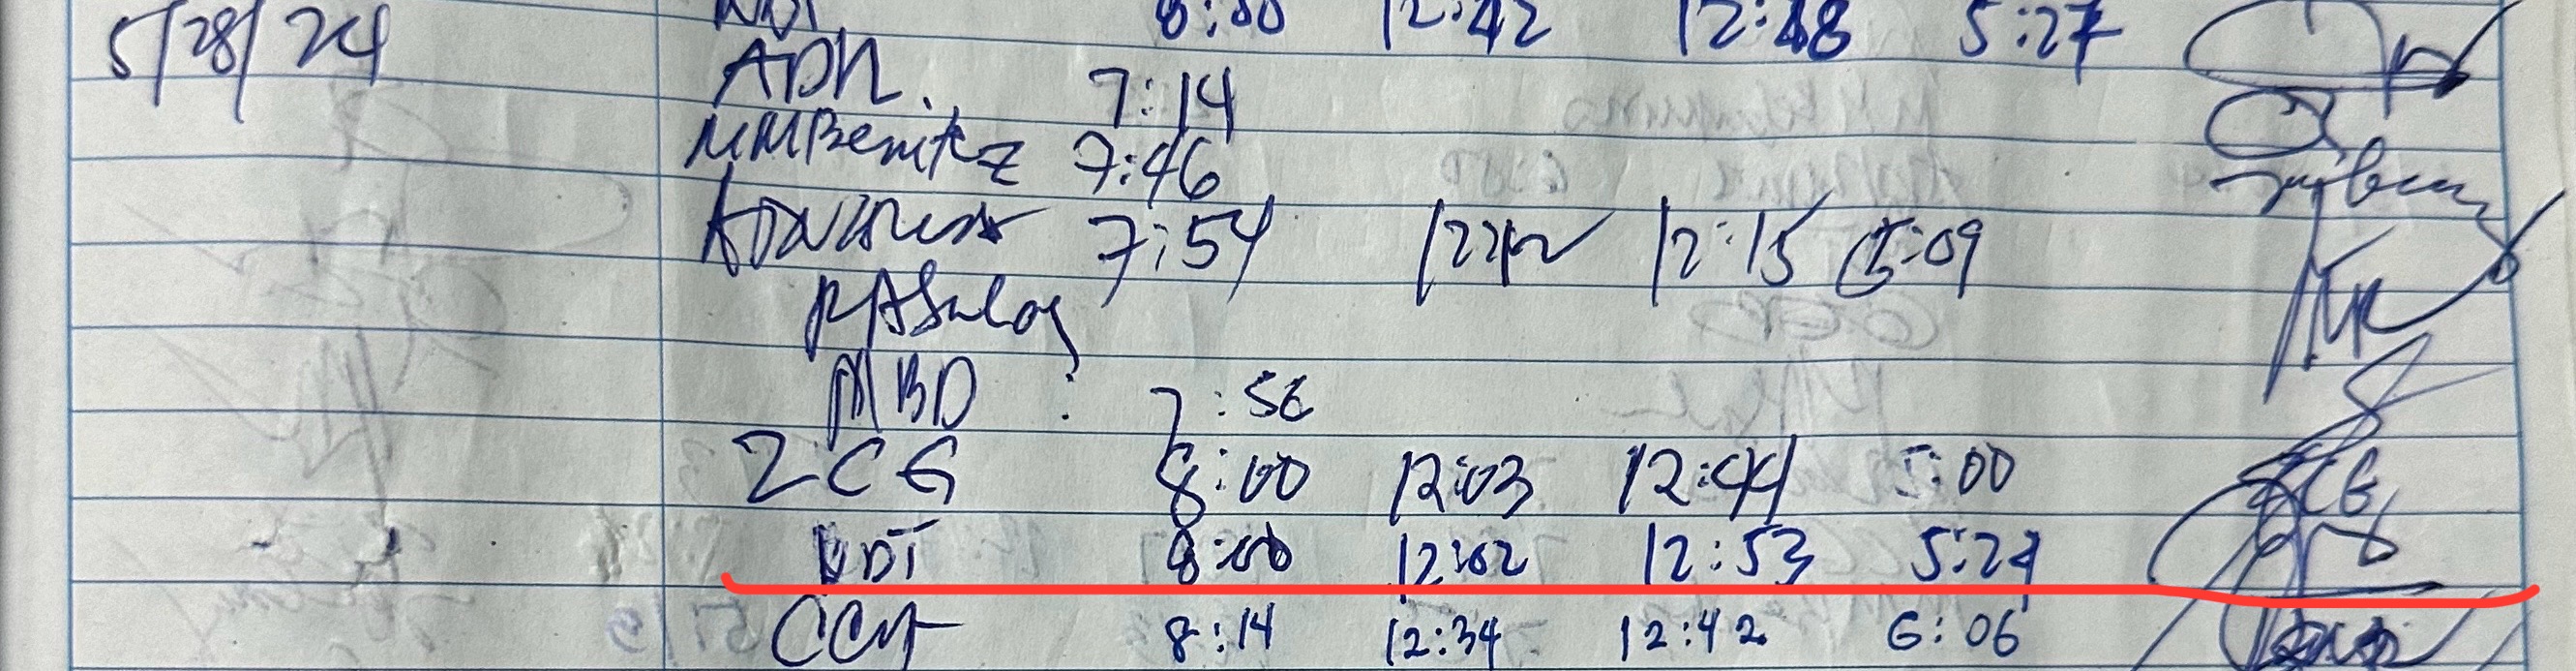 NDT 8:00 12:42 12:48 5:27
5/28/24 ADN. 7:14
MMBenitez 7:46
7:54 12:15 5:09
RASulog
MBD : 7:56
ZCG 8:00 12:03 12:44 5:00 ZCG
NDT 8:00 12:02 12:53 5:24
8:14 12:34 12:42 6:06